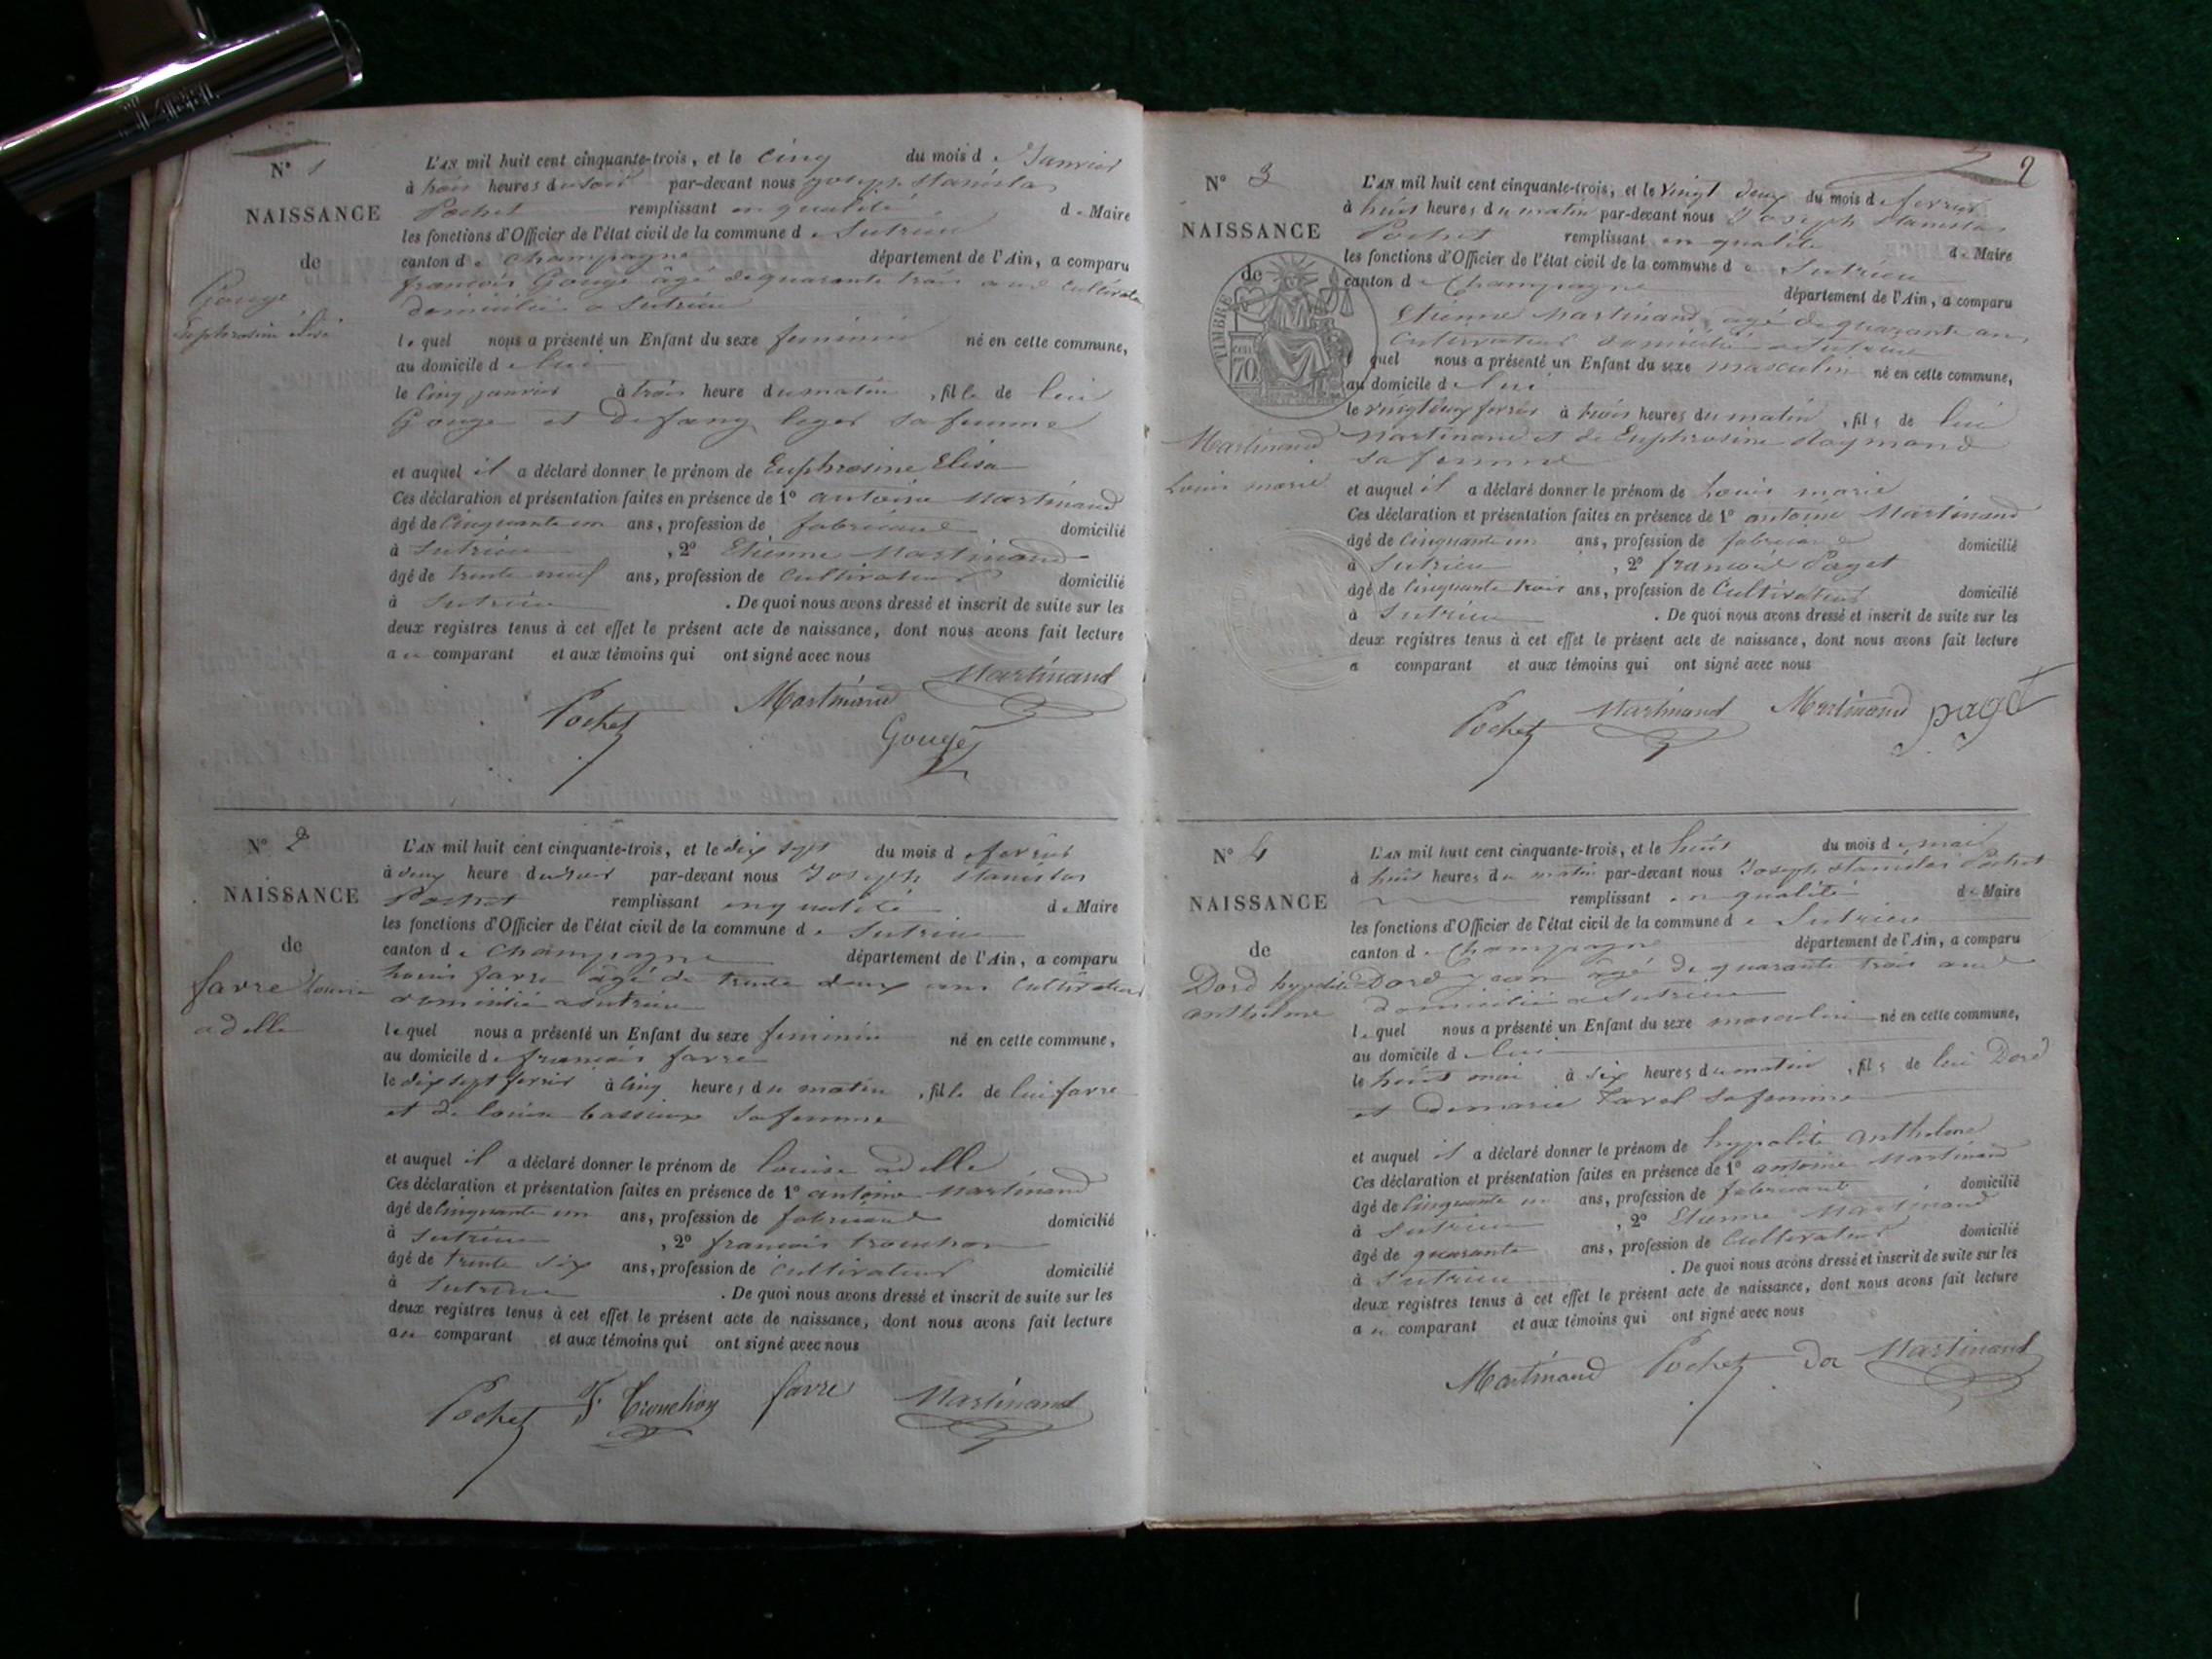 N° 1
NAISSANCE
de
Gouge
Euphrosine élisa
L'AN mil huit cent cinquante-trois, et le cinq du mois de Janvier
à trois heures du soir par-devant nous joseph Stanislas
Pochet remplissant en qualité de Maire
les fonctions d'Officier de l'état civil de la commune de Sutrieu
canton de Champagne département de l'Ain, a comparu
francois Gouge âgé de quarante trois ans Cultivateur
domicilié a Sutrieu
lequel nous a présenté un Enfant du sexe feminin né en cette commune,
au domicile de lui
le cinq janvier à trois heure du matin, fille de lui
Gouge et leger sa femme
et auquel il a déclaré donner le prénom de Euphrosine Elisa
Ces déclaration et présentation faites en présence de 1° antoine Martinand
âgé de Cinquante un ans, profession de fabricand domicilié
à Sutrieu, 2° Etienne Martinand
âgé de trente neuf ans, profession de Cultivateur domicilié
à Sutrieu. De quoi nous avons dressé et inscrit de suite sur les
deux registres tenus à cet effet le présent acte de naissance, dont nous avons fait lecture
au comparant et aux témoins qui ont signé avec nous
Martinand
Pochet Martinand
Gouge
N° 2
NAISSANCE
de
favre louise
adelle
L'AN mil huit cent cinquante-trois, et le dix sept du mois d fevrier
à deux heure du soir par-devant nous Joseph Stanislas
Pochet remplissant en qualité de Maire
les fonctions d'Officier de l'état civil de la commune de Sutrieu
canton de Champagne département de l'Ain, a comparu
louis favre âgé de trente deux ans Cultivateur
domicilié a Sutrieu
lequel nous a présenté un Enfant du sexe feminin né en cette commune,
au domicile de francois favre
le dix sept fevrier à cinq heures du matin, fille de lui favre
et de louise bassieux sa femme
et auquel il a déclaré donner le prénom de louise adelle
Ces déclaration et présentation faites en présence de 1° antoine Martinand
âgé de Cinquante un ans, profession de fabricand domicilié
à Sutrieu, 2° francois trouchon
âgé de trente six ans, profession de Cultivateur domicilié
à Sutrieu. De quoi nous avons dressé et inscrit de suite sur les
deux registres tenus à cet effet le présent acte de naissance, dont nous avons fait lecture
au comparant et aux témoins qui ont signé avec nous
Pochet F Trouchon favre Martinand
2
N° 3
NAISSANCE
de
TIMBRE
70
Martinand
Louis marie
L'AN mil huit cent cinquante-trois, et le vingt deux du mois de fevrier
à huit heures du matin par-devant nous Joseph Stanislas
Pochet remplissant en qualité de Maire
les fonctions d'Officier de l'état civil de la commune de Sutrieu
canton de Champagne département de l'Ain, a comparu
Etienne Martinand, agé de quarante ans
Cultivateur domicilié a Sutrieu
l quel nous a présenté un Enfant du sexe masculin né en cette commune,
au domicile de lui
le vingt deux fevrier à trois heures du matin, fils de lui
Martinand et de Euphrosine Raymond
sa femme
et auquel il a déclaré donner le prénom de Louis marie
Ces déclaration et présentation faites en présence de 1° antoine Martinand
âgé de Cinquante un ans, profession de fabricand domicilié
à Sutrieu, 2° francois Paget
âgé de Cinquante trois ans, profession de Cultivateur domicilié
à Sutrieu. De quoi nous avons dressé et inscrit de suite sur les
deux registres tenus à cet effet le présent acte de naissance, dont nous avons fait lecture
a comparant et aux témoins qui ont signé avec nous
Pochet Martinand Martinand paget
N° 4
NAISSANCE
de
Doré hypolite
anthelme
L'AN mil huit cent cinquante-trois, et le huit du mois de mai
à huit heures du matin par-devant nous Joseph Stanislas Pochet
remplissant en qualité de Maire
les fonctions d'Officier de l'état civil de la commune de Sutrieu
canton de Champagne département de l'Ain, a comparu
Doré jean agé de quarante trois ans
domicilié a Sutrieu
lequel nous a présenté un Enfant du sexe masculin né en cette commune,
au domicile de lui
le huit mai à six heures du matin, fils de lui Doré
et de marie sa femme
et auquel il a déclaré donner le prénom de hypolite anthelme
Ces déclaration et présentation faites en présence de 1° antoine Martinand
âgé de Cinquante un ans, profession de fabricant domicilié
à Sutrieu, 2° Etienne Martinand
âgé de quarante ans, profession de Cultivateur domicilié
à Sutrieu. De quoi nous avons dressé et inscrit de suite sur les
deux registres tenus à cet effet le présent acte de naissance, dont nous avons fait lecture
au comparant et aux témoins qui ont signé avec nous
Martinand Pochet Martinand